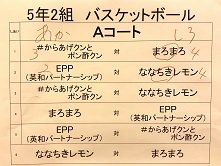 5年2組 バスケットボール
Aコート
あか しろ
1 #からあげクンと ポン酢クン 対 まろまろ
2 EPP (英和パートナーシップ) 対 ななちきレモン 4
3 #からあげクンと ポン酢クン 対 ななちきレモン
4 まろまろ 対 EPP (英和パートナーシップ)
5 EPP (英和パートナーシップ) 対 #からあげクンと ポン酢クン
6 ななちきレモン 対 まろまろ